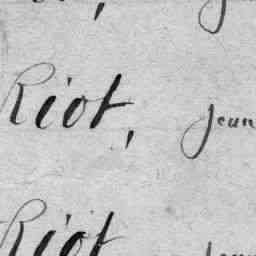 Riot, Jean
Riot